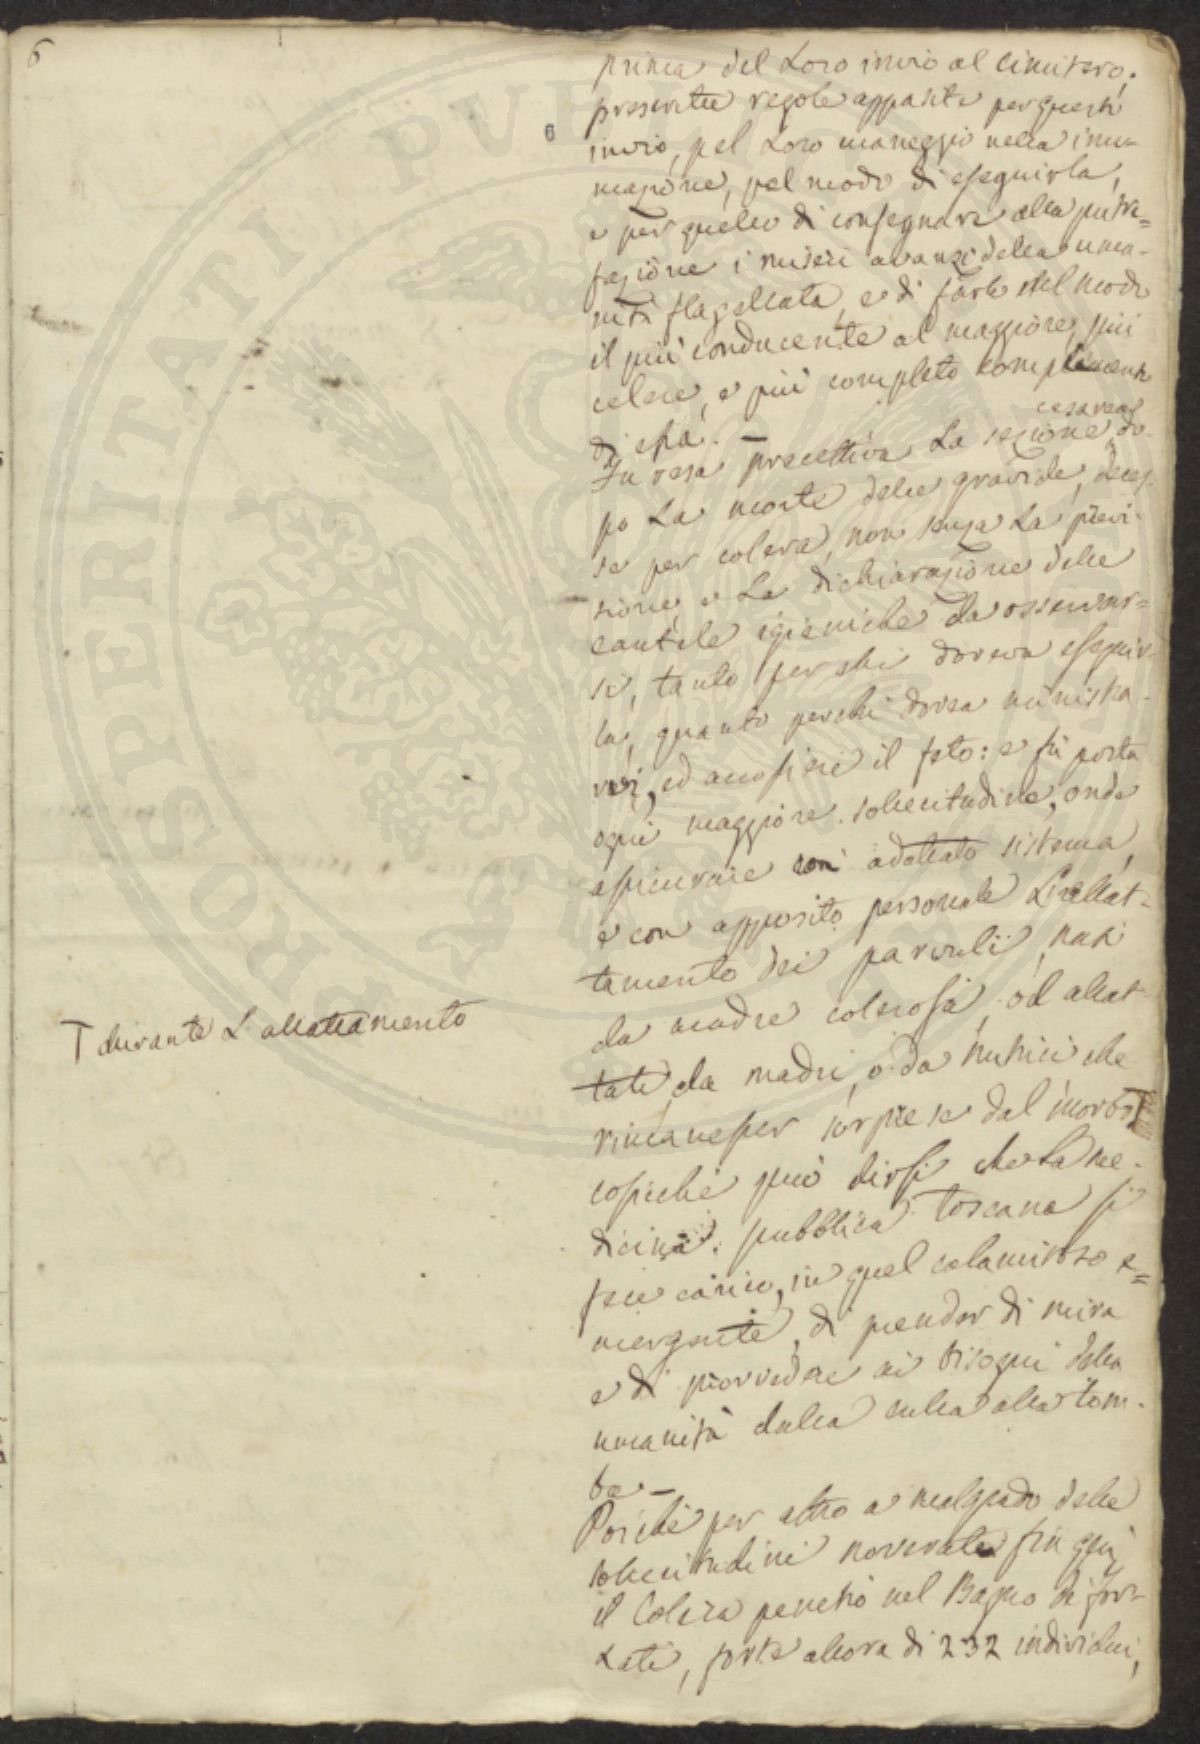 6
prima del Loro invio al Cimitero;
prescritte regole apposite per questi
invio, pel Loro maneggio nella inu-
mazione, pel modo di eseguirla,
e per quello di consegnare alla putre=
fazione i miseri avanzi della uma-
nità flagellata, e di farlo nel modo
il più conducente al maggiore, più
celere, e più completo compimento
di essa. —
Fu resa precettiva La sezione cesarea do-
po La morte delle gravide, deces-
se per colera, non senza La previ-
sione, e La dichiarazione delle
cautele igieniche da osservar=
si, tanto per chi doveva eseguir-
la, quanto per chi dovea ministra-
re, ed accogliere il feto: e fu posta
ogni maggiore sollecitudine, onde
assicurare con adattato sistema,
e con apposito personale L'allat-
tamento dei parvuli, nati
da madre colerosa, od allat-
tati da madri, o da nutrici che
rimanesser sorprese dal morbo T
T durante L'allattamento
cosicché può dirsi che La me-
dicina pubblica Toscana si
fece carico, in quel calamitoso e=
mergente, di prender di mira
e di provvedere ai bisogni della
umanità dalla culla alla tom-
ba —
Poiché per altro a malgrado delle
sollecitudini noverate fin qui,
il Colera penetrò nel Bagno dei for-
zati, forte allora di 232 individui,